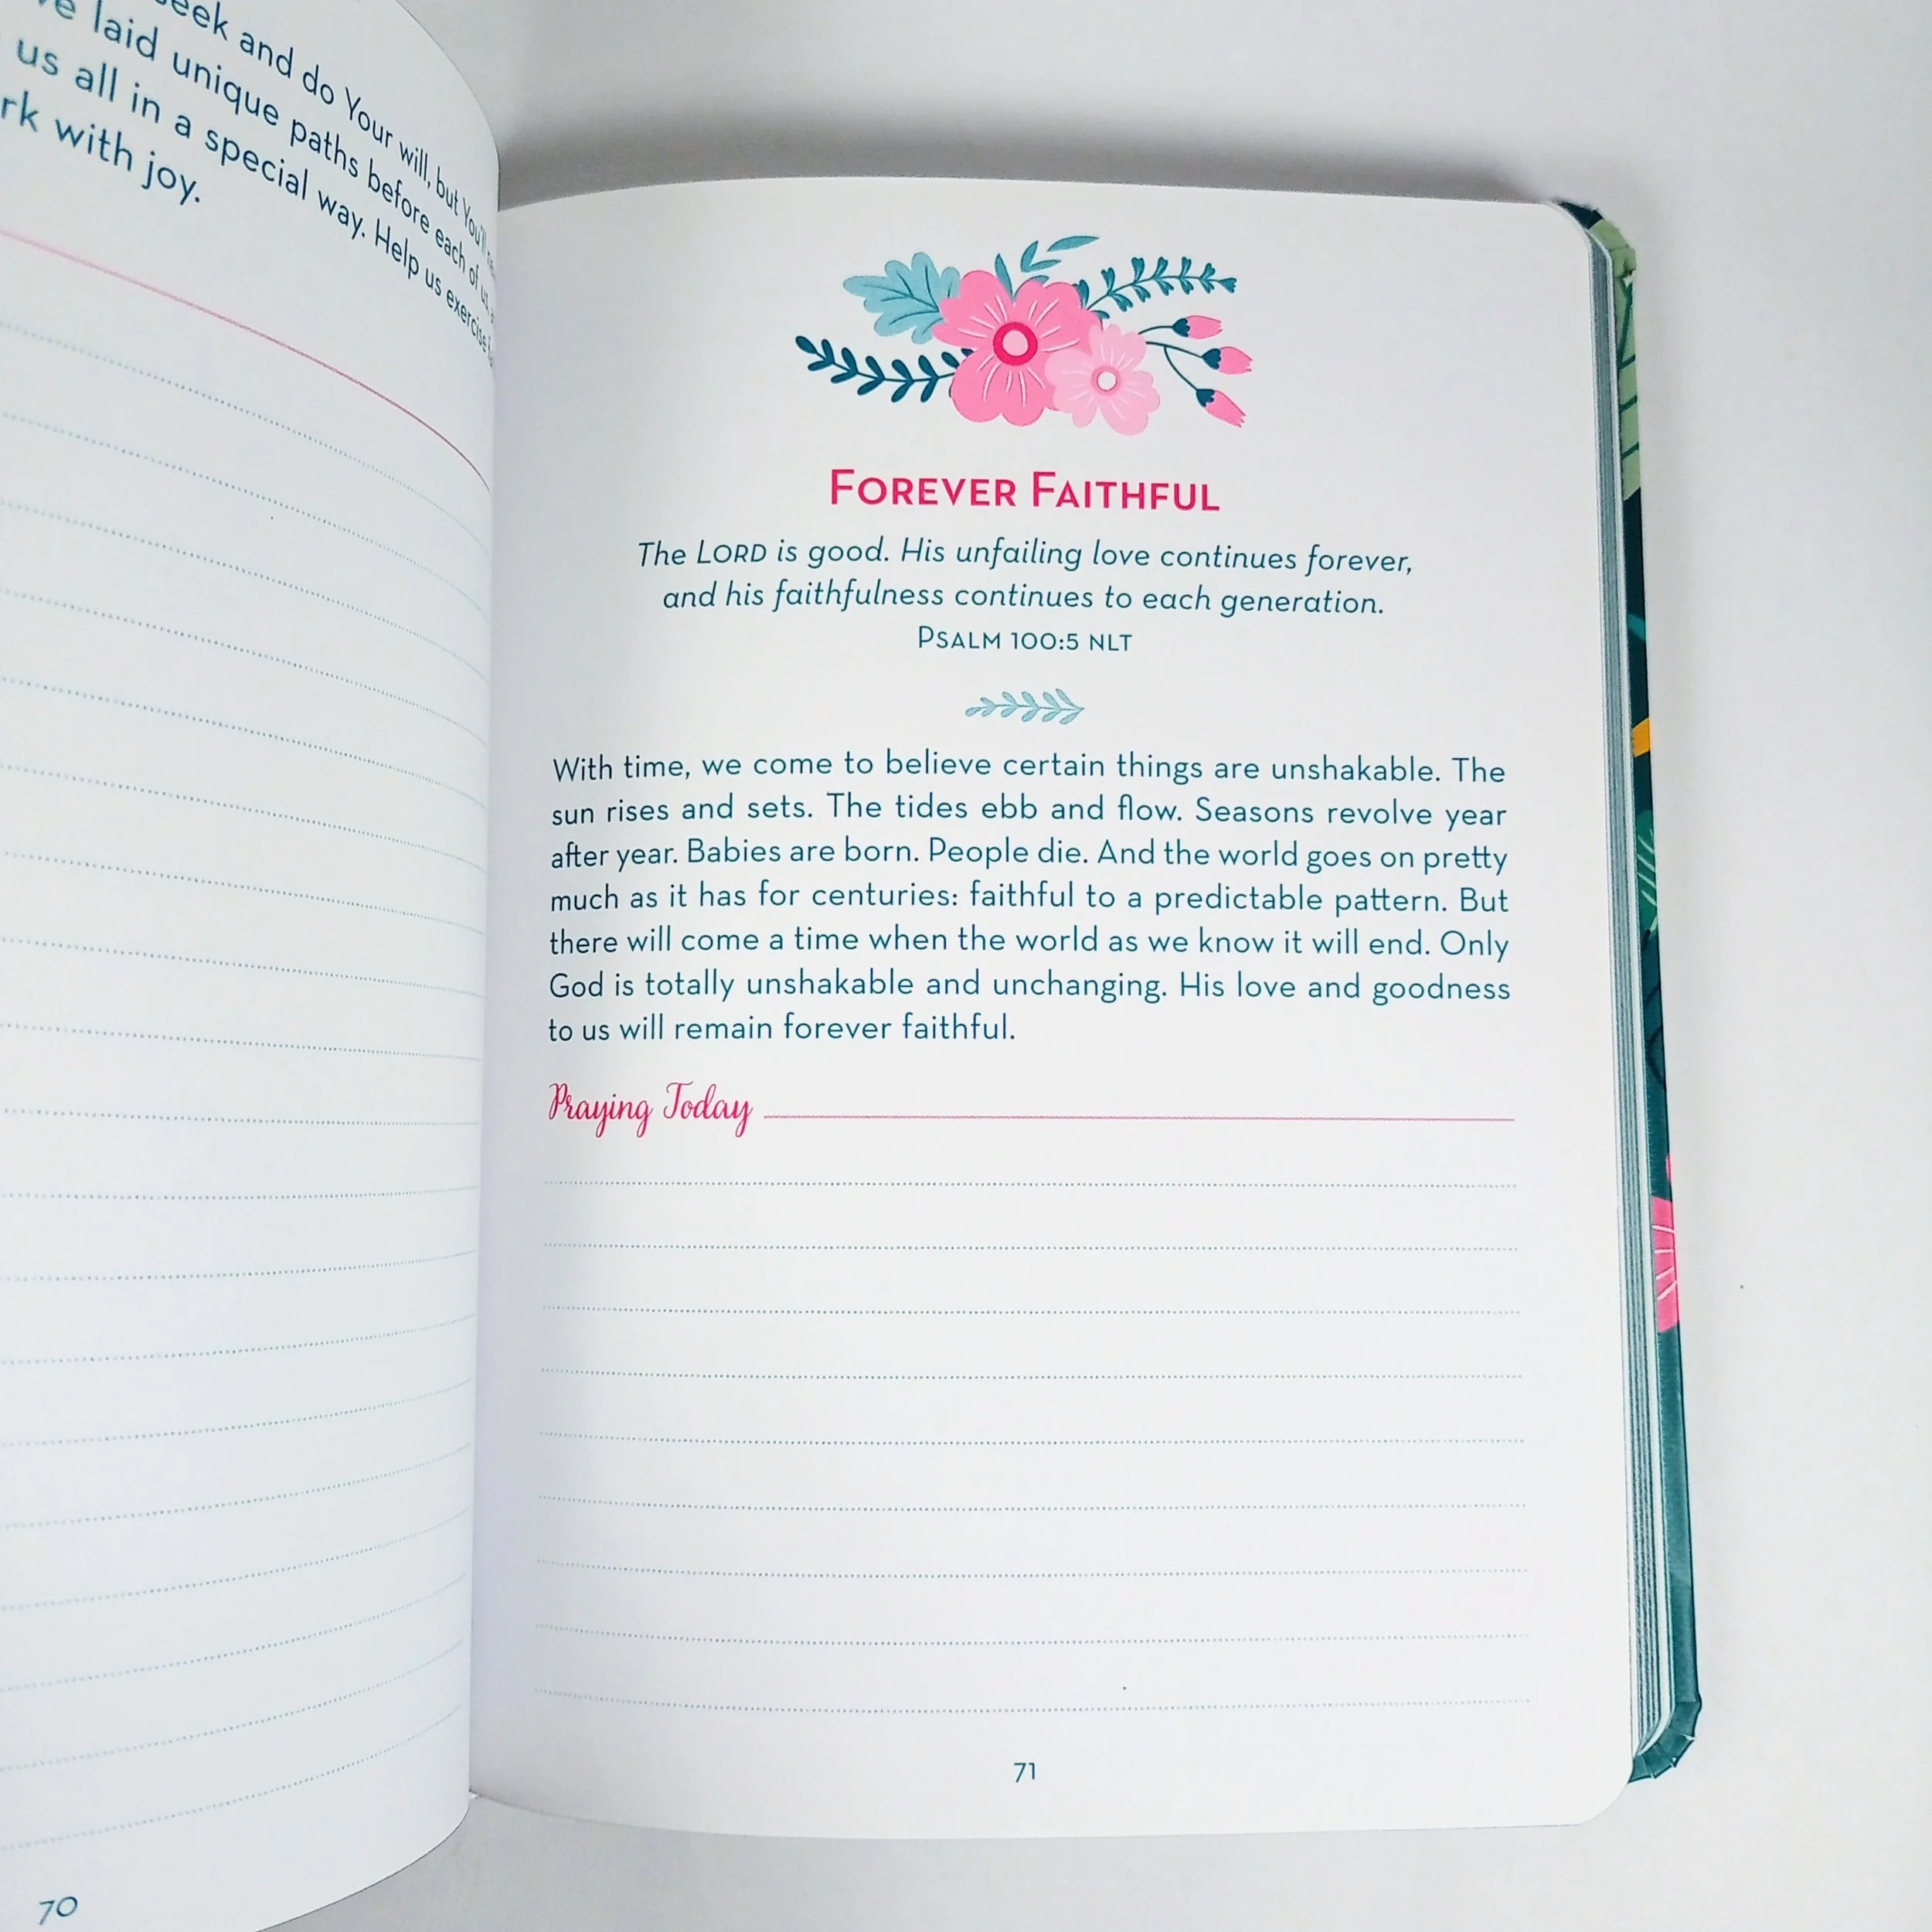 seek and do Your will, but You'll
laid unique paths before each of us,
us all in a special way. Help us exercise
with joy.
70
FOREVER FAITHFUL
The LORD is good. His unfailing love continues forever,
and his faithfulness continues to each generation.
PSALM 100:5 NLT
With time, we come to believe certain things are unshakable. The
sun rises and sets. The tides ebb and flow. Seasons revolve year
after year. Babies are born. People die. And the world goes on pretty
much as it has for centuries: faithful to a predictable pattern. But
there will come a time when the world as we know it will end. Only
God is totally unshakable and unchanging. His love and goodness
to us will remain forever faithful.
Praying Today
71